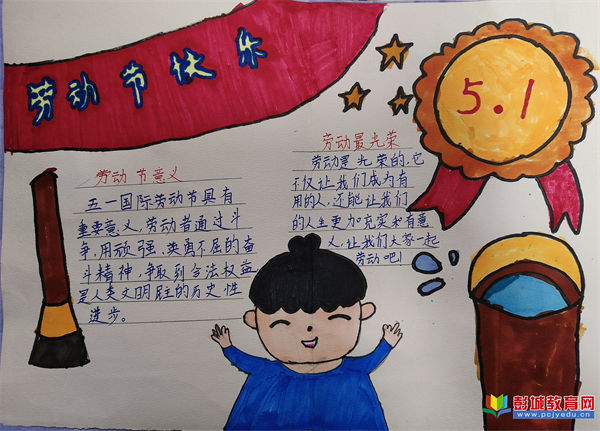 劳动节快乐
5.1
劳动节意义
五一国际劳动节具有
重要意义,劳动者通过斗
争,用顽强、英勇不屈的奋
斗精神,争取到合法权益
是人类文明民主的历史性
进步。
劳动最光荣
劳动是光荣的,它
不仅让我们成为有
用的人,还能让我们
的人生更加充实和有意
义,让我们大家一起
劳动吧!
彭城教育网
www.pcjyedu.cn